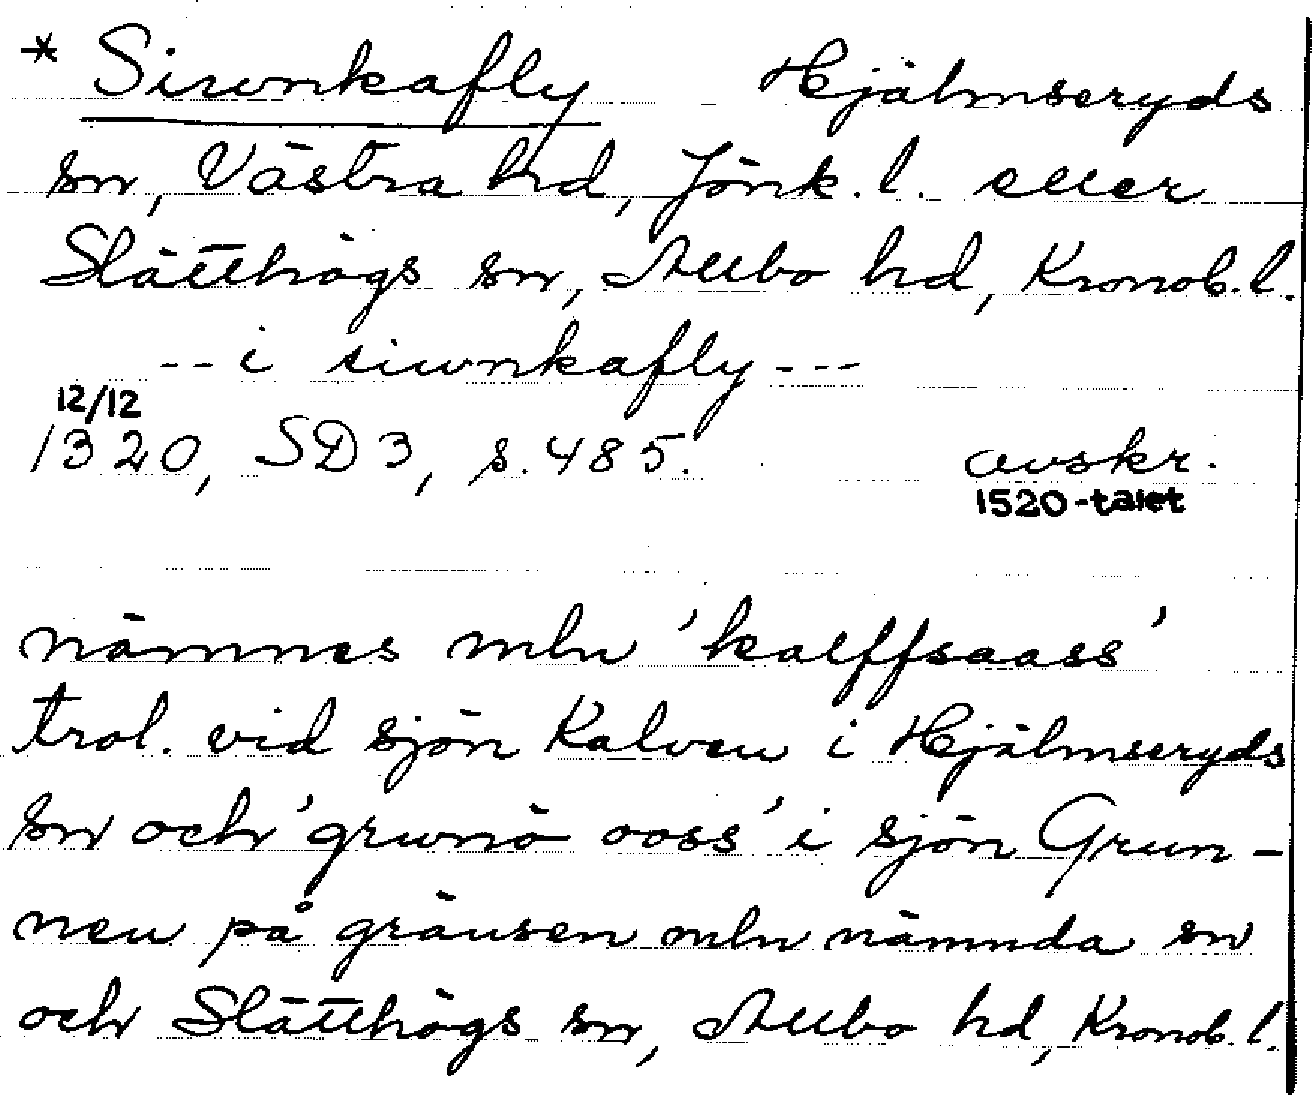 * Siwnkafly Hjälmseryds
sn, Västra hd, Jönk. l. eller
Slätthögs sn, Allbo hd, Kronob. l.
-- i siwnkafly ---
12/12
1320, SD 3, s. 485. avskr.
1520-talet
nämnes mln 'kalffsaass'
trol. vid sjön Kalven i Hjälmseryds
sn och 'grwnö ooss' i sjön Grun-
nen på gränsen mln nämnda sn
och Slätthögs sn, Allbo hd, Kronob. l.